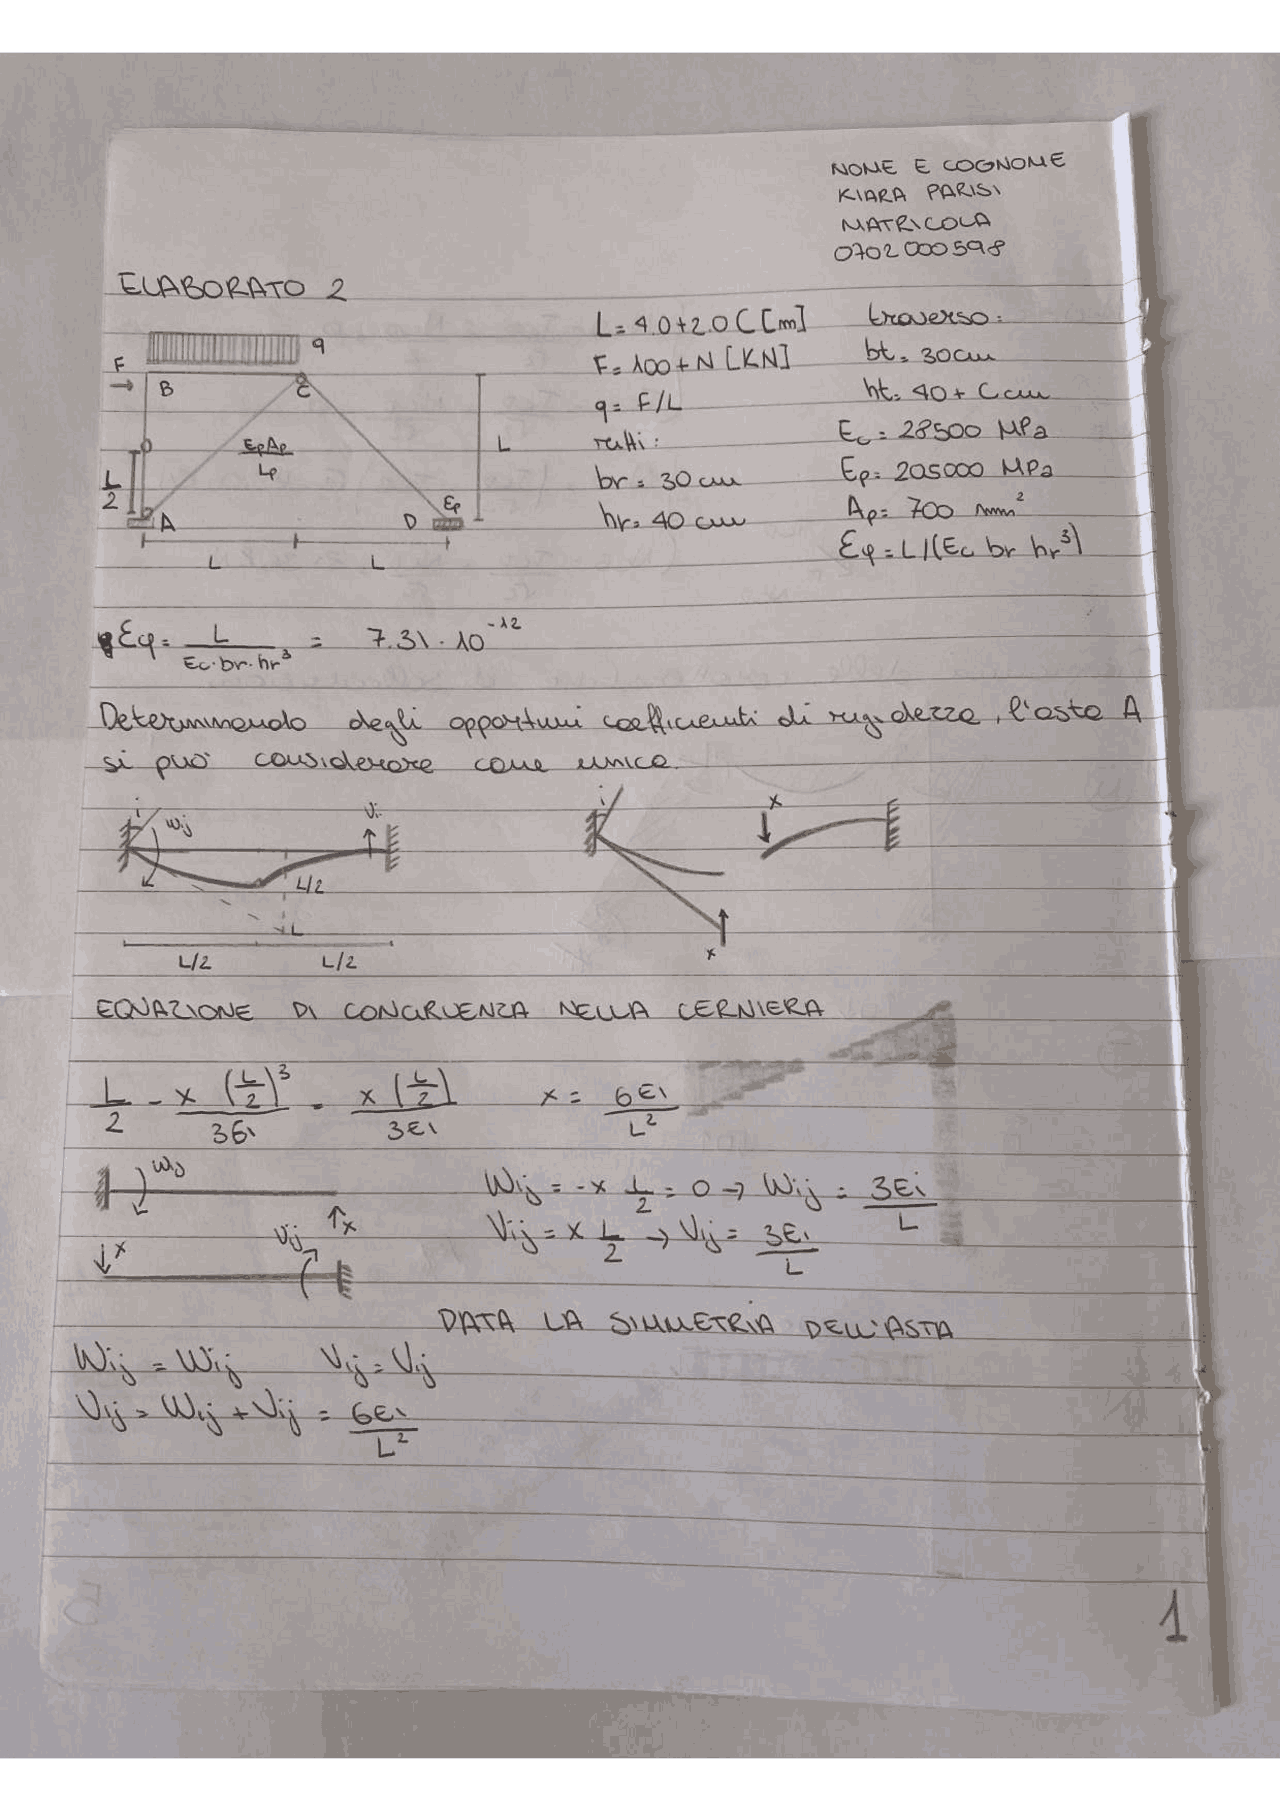 NOME E COGNOME
KIARA PARISI
MATRICOLA
0702000598
ELABORATO 2
F
q
B
C
EpAp
Lp
L
L/2
A
D
Eφ
L
L
L= 4.0+2.0 C [m]
F= 100+N [KN]
q= F/L
ritti:
br= 30 cm
hr= 40 cm
traverso:
bt= 30cm
ht= 40+ C cm
Ec= 28500 MPa
Ep= 205000 MPa
Ap= 700 mm²
Eφ= L/(Ec br hr³)
Eφ= L/(Ec·br·hr³) = 7.31·10⁻¹²
Determinando degli opportuni coefficienti di rigidezza, l'asta A
si può considerare come unica.
i
Wij
L/2
L
L/2 L/2
i
x
x
EQUAZIONE DI CONGRUENZA NELLA CERNIERA
L/2 - x (L/2)³/3Ei - x (L/2)/3Ei x= 6Ei/L²
Wij = -x L/2 = 0 → Wij = 3Ei/L
Vij = x L/2 → Vij = 3Ei/L
x
x
Vij
DATA LA SIMMETRIA DELL'ASTA
Wij = Wij Vij = Vij
Vij = Wij + Vij = 6Ei/L²
1